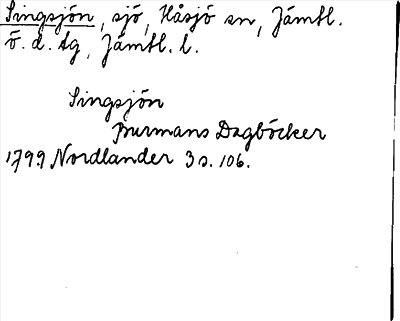 Singsjön, sjö, Håsjö sn, Jämtl.
ö. d. tg, Jämtl. l.
Singsjön
Burmans Dagböcker
1799 Nordlander 3 s. 106.